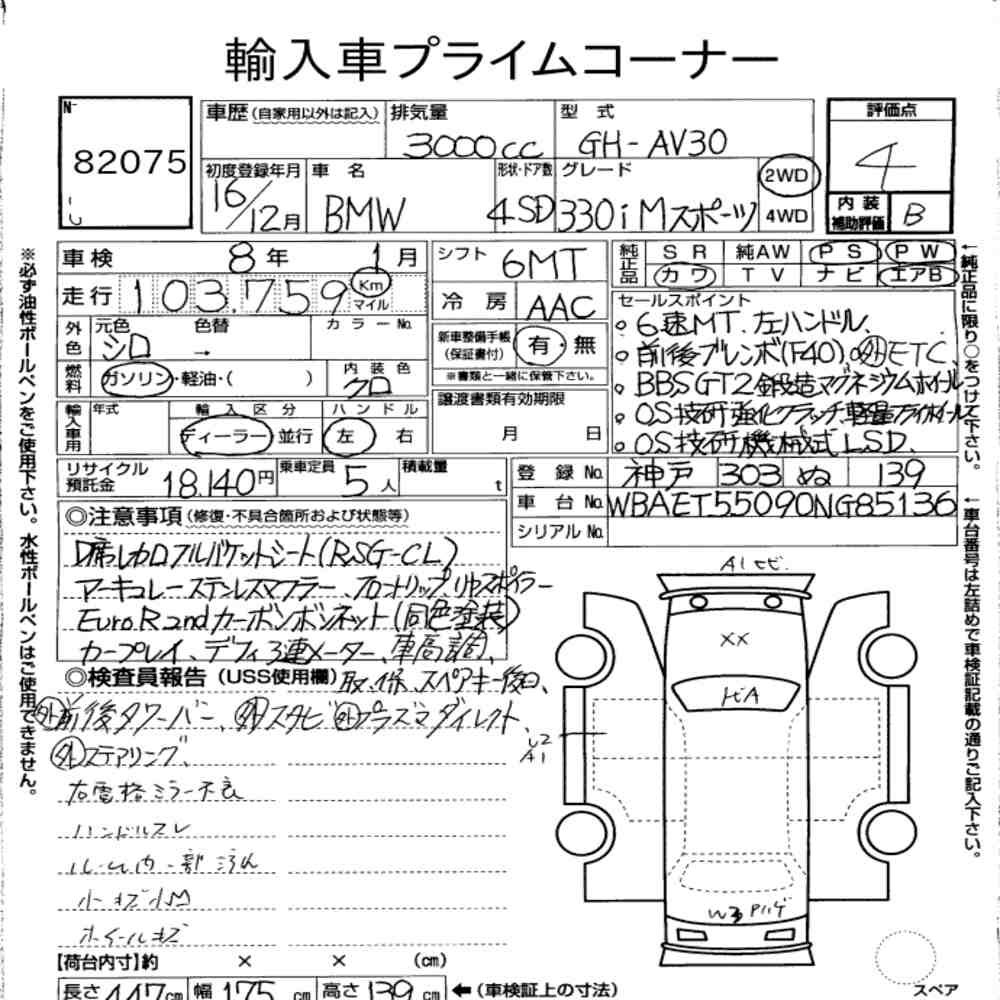 輸入車プライムコーナー
No.
82075
車歴(自家用以外は記入)
排気量
3000cc
型 式
GH-AV30
評価点
4
初度登録年月
16/12月
車 名
BMW
形状・ドア数
4SD
グレード
330i Mスポーツ
2WD
4WD
内 装
補助評価
B
車検 8年 1月
シフト 6MT
純正品
SR 純AW PS PW
カワ TV ナビ エアB
走行 103.759 Km
マイル
冷 房 AAC
セールスポイント
。6速MT.左ハンドル.
。前後ブレンボ(F40)。外ETC
。BBSGT2鍛造マグネシウムホイール
。OS技研強化クラッチ.軽量フライホイール
。OS技研機械式LSD.
外色
元色 シロ
色替 →
カラーNo.
新車整備手帳
(保証書付)
有・無
※書類と一緒に保管下さい。
燃料
ガソリン・軽油・( )
内装色
クロ
譲渡書類有効期限
月 日
輸入車用
年式
輸入区分
ディーラー 並行
ハンドル
左 右
リサイクル
預託金
18.140円
乗車定員
5人
積載量
t
登録No. 神戸 303 ぬ 139
車台No. WBAET55090NG85136
シリアルNo.
◎注意事項(修復・不具合箇所および状態等)
D席レカロフルバケットシート(RSG-CL)
マーキュレーステンレスマフラー.フロントリップ.リヤスポイラー
Euro.R 2ndカーボンボンネット(同色塗装)
カープレイ、デフィ3連メーター、車高調、
◎検査員報告(USS使用欄)
取、保、スペアキー後日、
外前後タワーバー、外スタビ 外プラズマダイレクト
外ステアリング
右電格ミラー不良
ハンドルスレ
ルーム内一部汚れ
小キズ小凹
ホイールキズ
A1 ヒビ
XX
ヒA
U2
A1
W3 Pハゲ
【荷台内寸】約 × × (cm)
長さ 447cm 幅 175cm 高さ 139cm ←(車検証上の寸法)
スペア
※必ず油性ボールペンをご使用下さい。水性ボールペンはご使用できません。
←純正品に限り○をつけて下さい。
←車台番号は左詰めで車検証記載の通りご記入下さい。